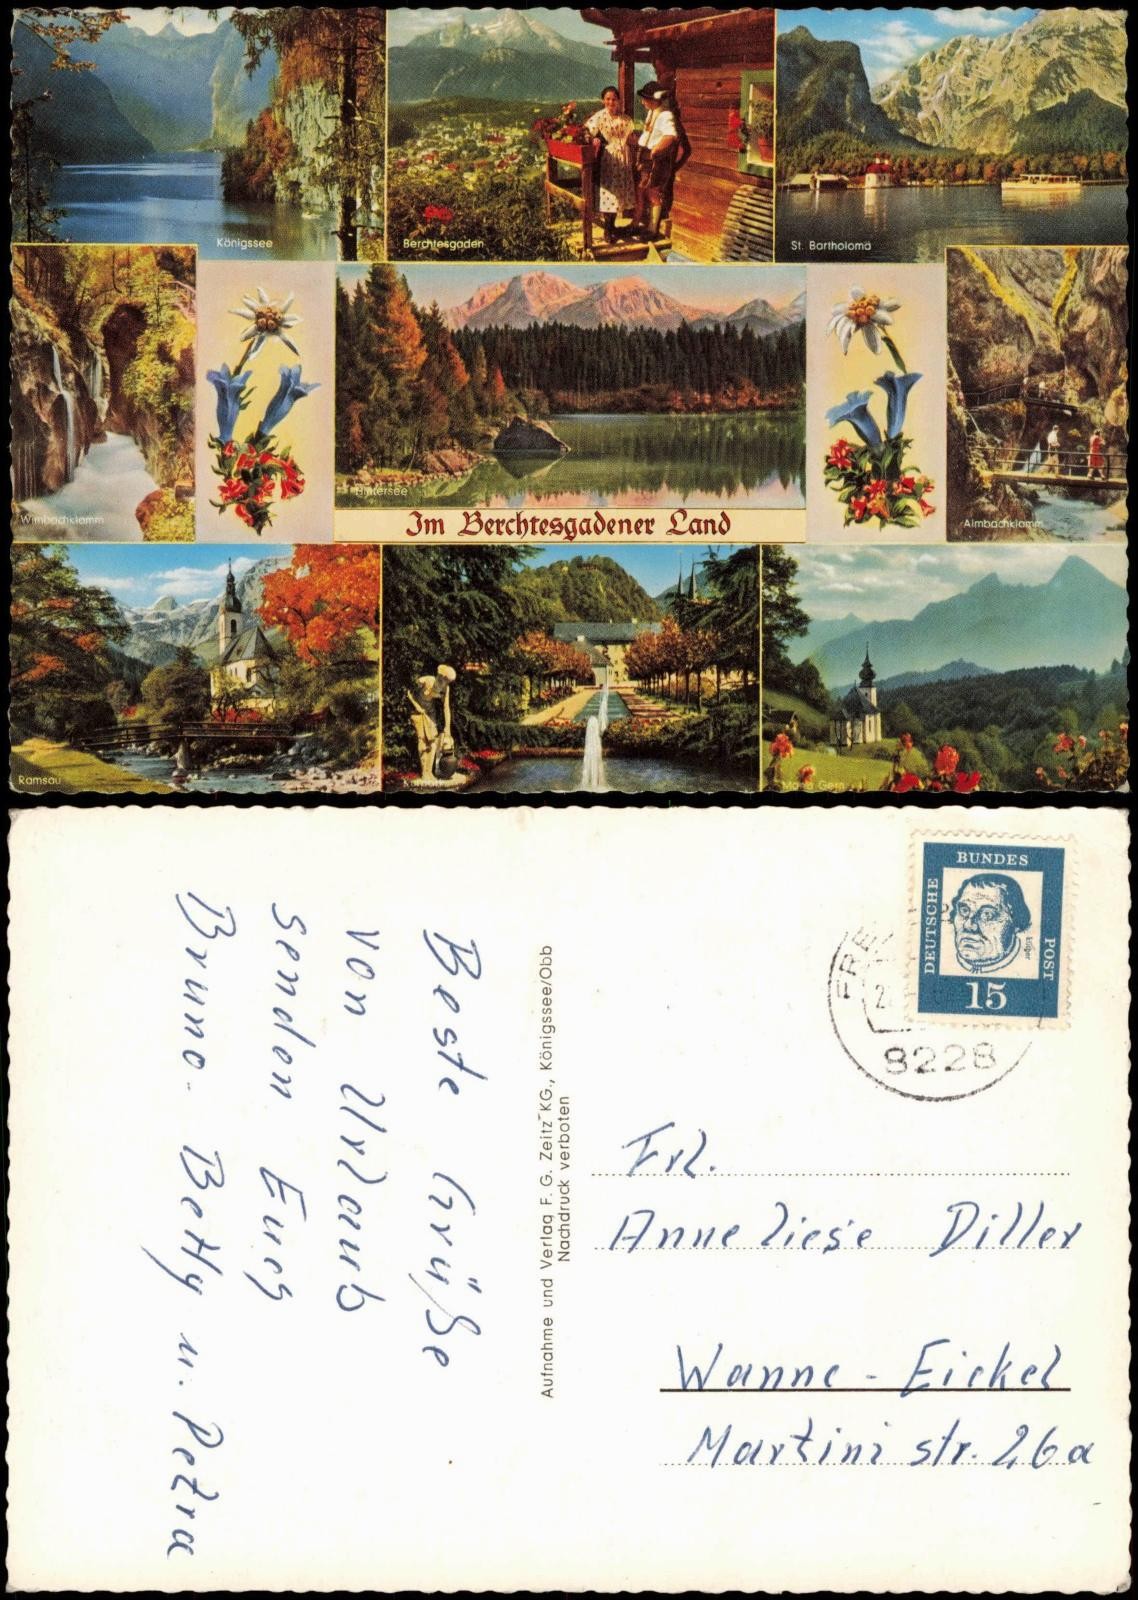 Königssee
Berchtesgaden
St. Bartholomä
Wimbachklamm
Hintersee
Almbachklamm
Im Berchtesgadener Land
Ramsau
Kurpark
Maria Gern
Beste Grüße
von Urlaub
senden Euch
Bruno. Betty u. Petra
Aufnahme und Verlag F. G. Zeitz KG., Königssee/Obb
Nachdruck verboten
DEUTSCHE
BUNDES
POST
15
FRE
8228
Frl.
Anneliese Diller
Wanne-Eickel
Martinistr. 26a